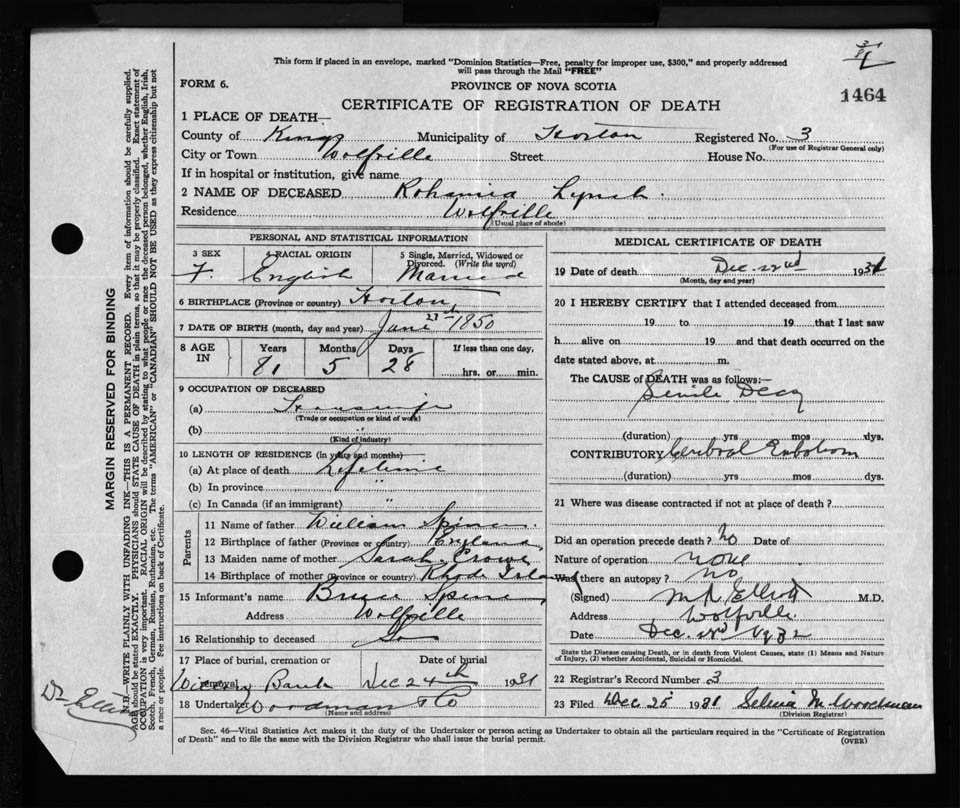 This form if placed in an envelope, marked "Dominion Statistics—Free, penalty for improper use, $300," and properly addressed
will pass through the Mail "FREE"
FORM 6.
PROVINCE OF NOVA SCOTIA
1464
CERTIFICATE OF REGISTRATION OF DEATH
1 PLACE OF DEATH—
County of Kings Municipality of Horton Registered No. 3
(For use of Registrar General only)
City or Town Wolfville Street House No.
If in hospital or institution, give name
2 NAME OF DECEASED Lynch
Residence Wolfville
(Usual place of abode)
PERSONAL AND STATISTICAL INFORMATION
3 SEX 4 RACIAL ORIGIN 5 Single, Married, Widowed or Divorced. (Write the word)
F. English Married
6 BIRTHPLACE (Province or country) Horton
7 DATE OF BIRTH (month, day and year) 1850
8 AGE IN Years Months Days If less than one day,
81 5 28 hrs. or min.
9 OCCUPATION OF DECEASED
(a) Housewife
(Trade or occupation or kind of work)
(b) "
(Kind of industry)
10 LENGTH OF RESIDENCE (in years and months)
(a) At place of death Lifetime
(b) In province "
(c) In Canada (if an immigrant) "
Parents
11 Name of father William
12 Birthplace of father (Province or country) England
13 Maiden name of mother Sarah Crowe
14 Birthplace of mother (Province or country) Rhode Island
15 Informant's name
Address Wolfville
16 Relationship to deceased
17 Place of burial, cremation or removal Date of burial
Bank Dec 24th 1931
18 Undertaker Woodman & Co
(Name and address)
MEDICAL CERTIFICATE OF DEATH
19 Date of death Dec. 22nd 1931
(Month, day and year)
20 I HEREBY CERTIFY that I attended deceased from
19 to 19 that I last saw
h alive on 19 and that death occurred on the
date stated above, at m.
The CAUSE of DEATH was as follows:—
Senile Decay
(duration) yrs mos dys.
CONTRIBUTORY Cerebral Embolism
(duration) yrs mos dys.
21 Where was disease contracted if not at place of death?
Did an operation precede death? No Date of
Nature of operation none
Was there an autopsy? no
(Signed) Elliott M.D.
Address Wolfville
Date Dec. 1932
State the Disease causing Death, or in death from Violent Causes, state (1) Means and Nature
of Injury, (2) whether Accidental, Suicidal or Homicidal.
22 Registrar's Record Number 3
23 Filed Dec 25 1931 Selina M. Woodman
(Division Registrar)
Sec. 46—Vital Statistics Act makes it the duty of the Undertaker or person acting as Undertaker to obtain all the particulars required in the "Certificate of Registration
of Death" and to file the same with the Division Registrar who shall issue the burial permit.
(OVER)
MARGIN RESERVED FOR BINDING
N.B.—WRITE PLAINLY WITH UNFADING INK—THIS IS A PERMANENT RECORD. Every item of information should be carefully supplied.
AGE should be stated EXACTLY. PHYSICIANS should STATE CAUSE OF DEATH in plain terms, so that it may be properly classified. Exact statement of
OCCUPATION is very important. RACIAL ORIGIN will be described by stating to what people or race the deceased person belonged, whether English, Irish,
Scotch, French, German, Russian, Ruthenian, etc. The terms "AMERICAN" or "CANADIAN" SHOULD NOT BE USED as they express citizenship but not
a race or people. See instructions on back of Certificate.
Dr Elliott